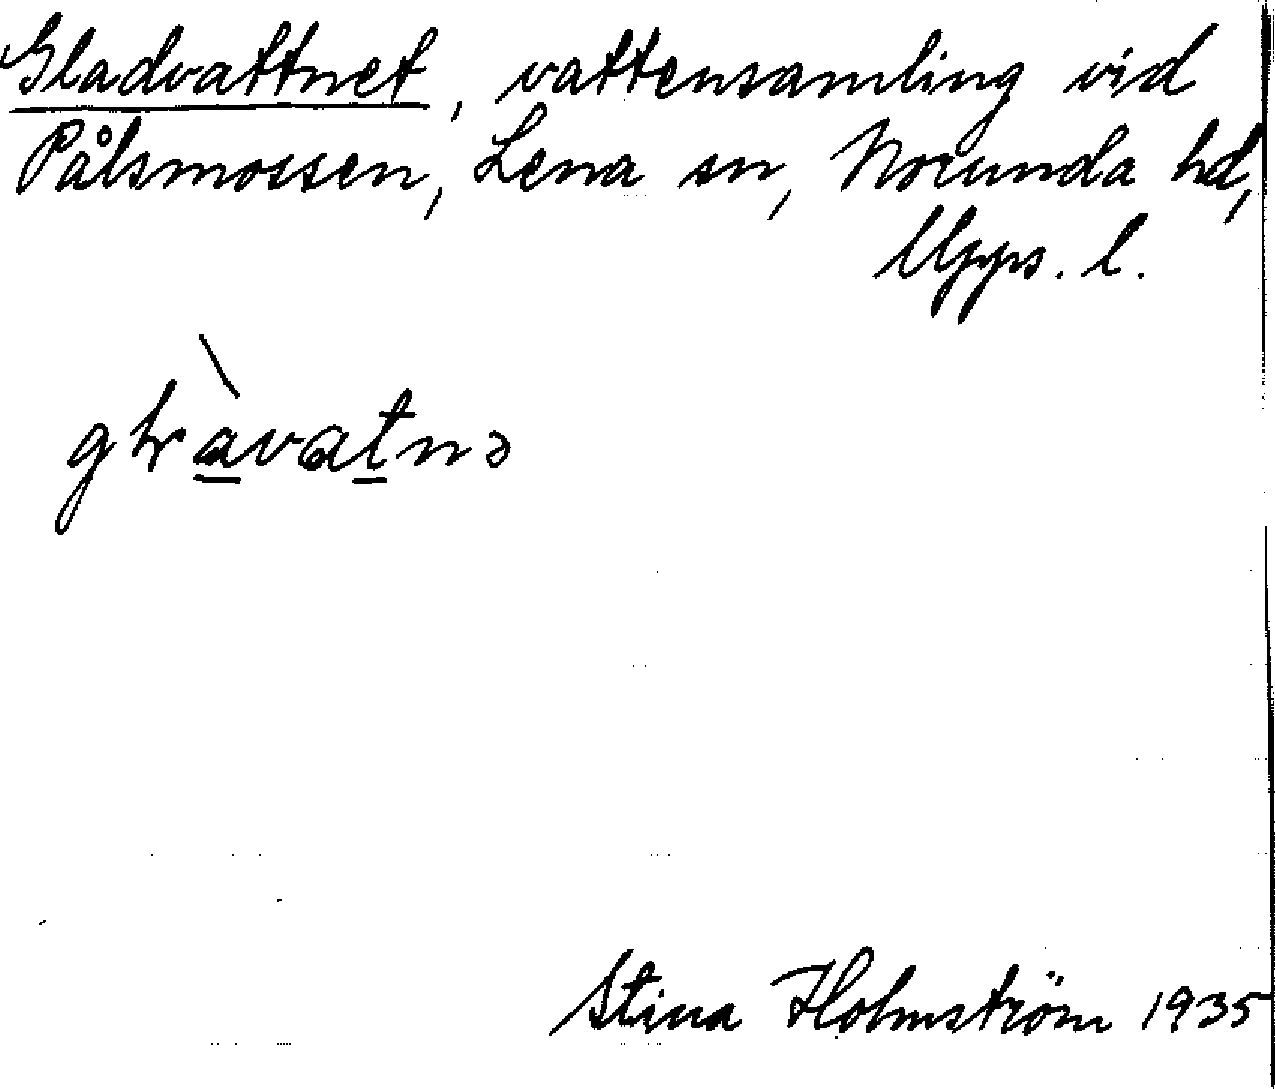 Gladvattnet, vattensamling vid
Pålsmossen, Lena sn, Norunda hd,
Upps. l.
Stina Holmström 1935